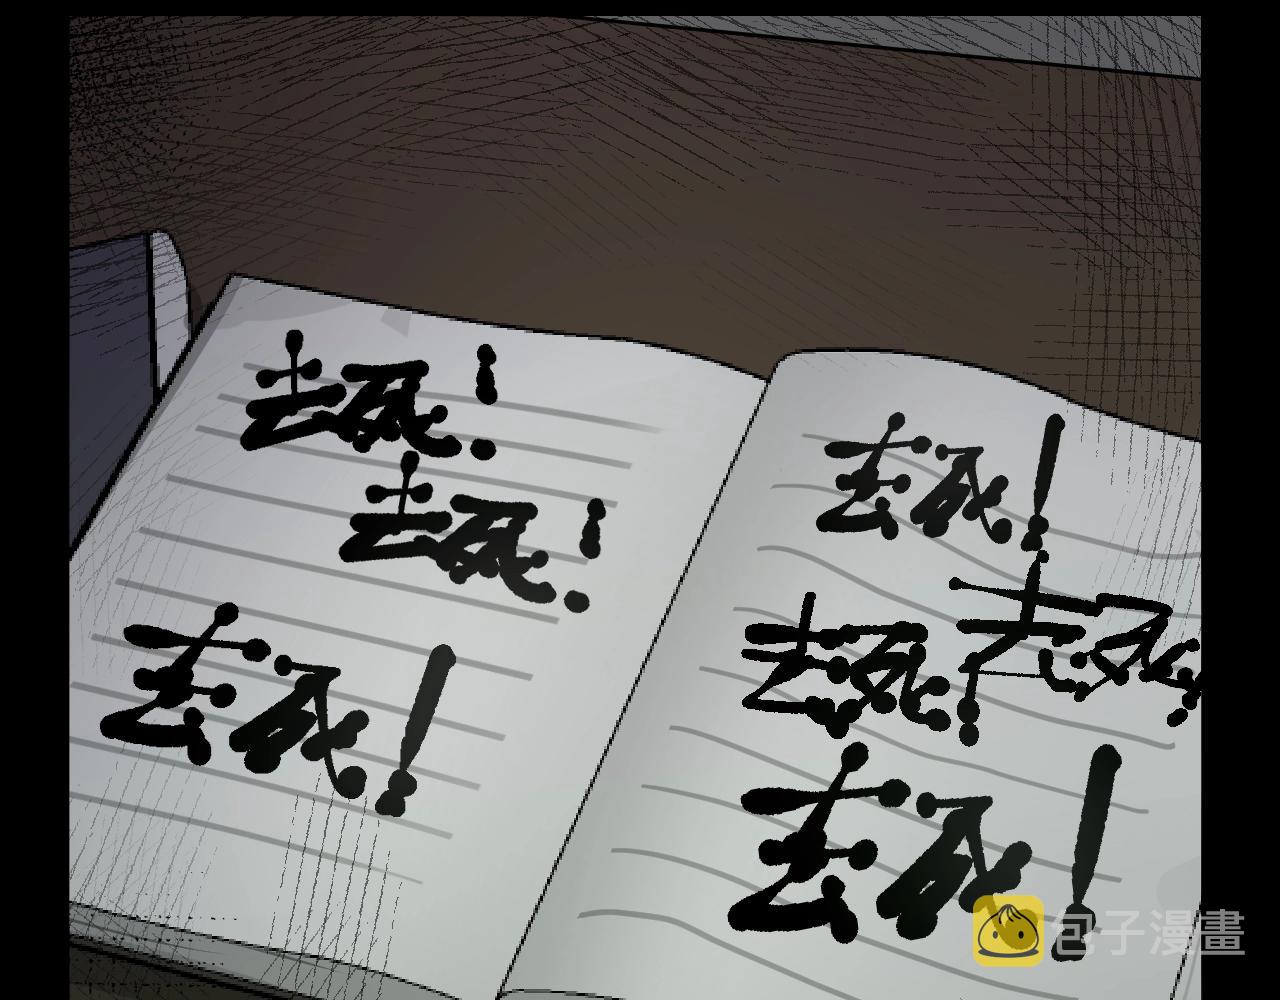 去死!
去死!
去死!
去死!
去死!
去死
去死!
包子漫畫